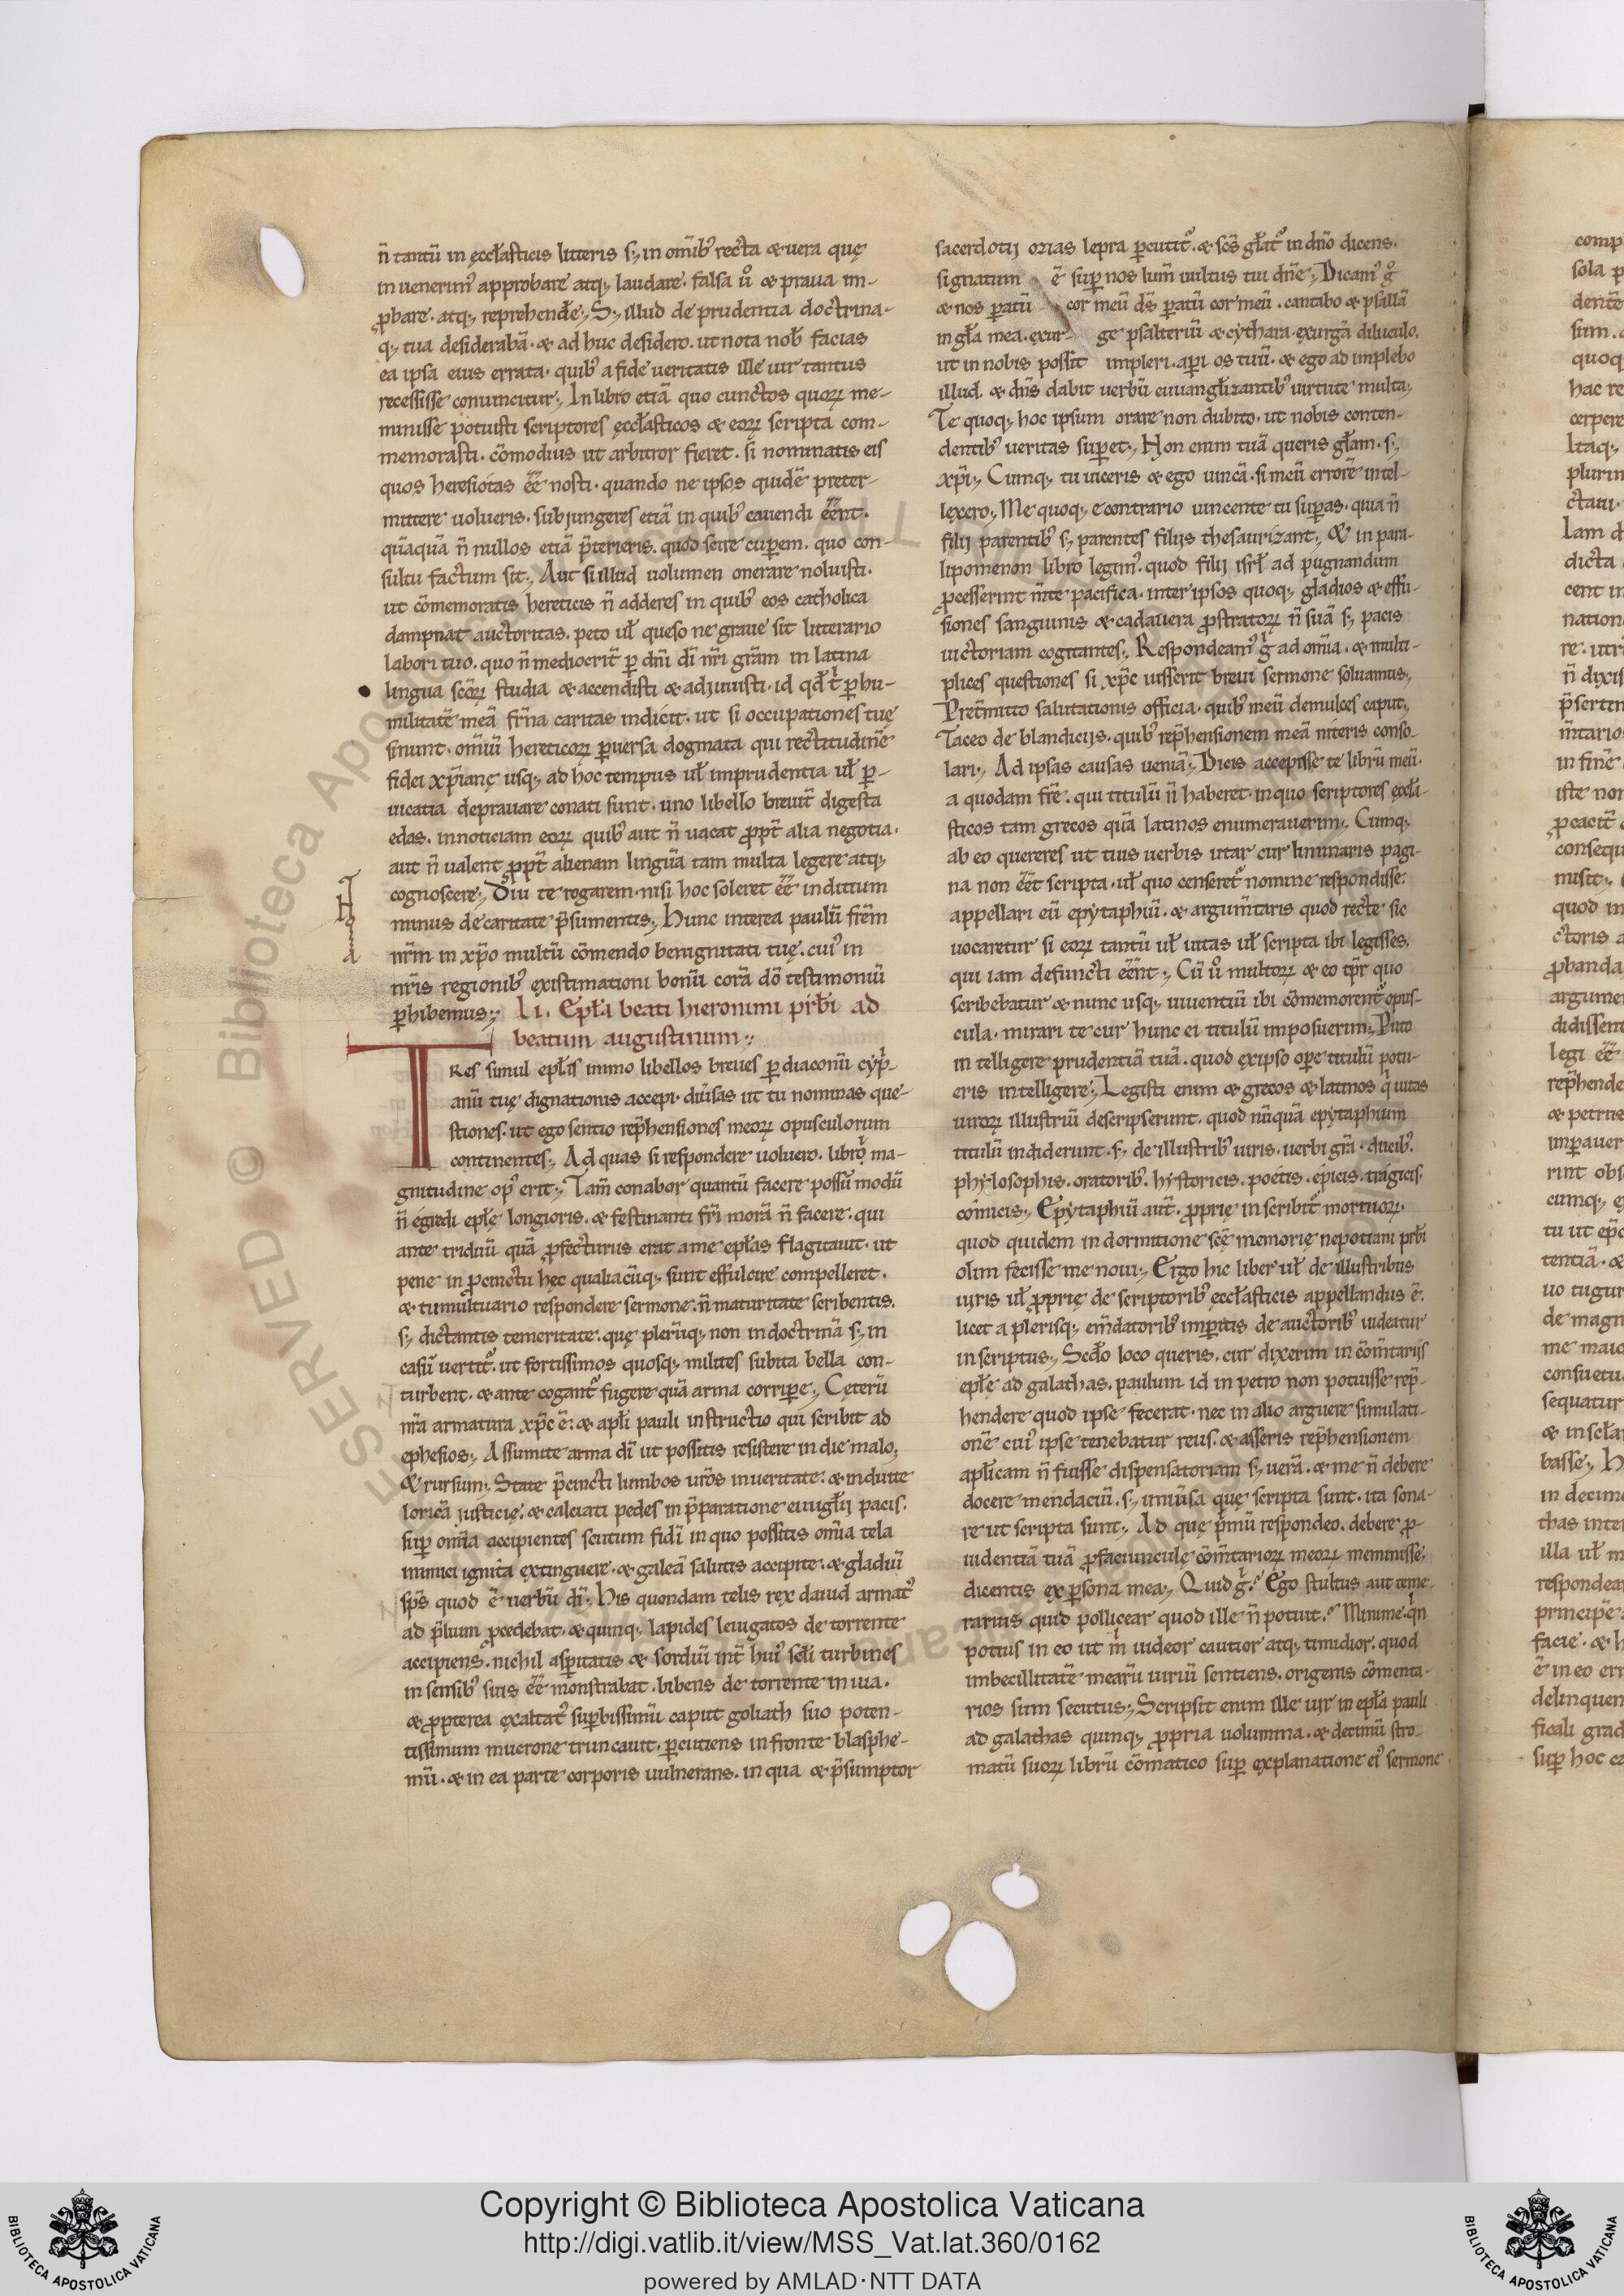 ñ tantũ in ęccƚasticis litteris s; in om̃ibꝰ recta & uera quę
in uenerimꝰ approbare atq; laudare. falsa ů & praua im-
ꝓbare. atq; reprehendẽ; S; illud de prudentia doctrina-
q; tua desiderabã. & ad huc desidero. ut nota nob̃ facias
ea ipsa eius errata. quibꝰ a fide ueritatis ille uir tantus
recessisse conuincitur; In libro etiã quo cunctos quoꝝ me-
minisse potuisti scriptores ęccƚasticos & eoꝝ scripta com-
memorasti. cõmodius ut arbitror fieret. si nominatis eis
quos heresiotas ẽẽ nosti. quando ne ipsos quidẽ preter-
mittere uolueris. subjungeres etiã in quibꝰ cauendi ẽẽnt.
quãquã ñ nullos etiã p̃terieris. quod scire cuꝑem. quo con-
sultu factum sit; Aut si illud uolumen onerare noluisti.
ut cõmemoratis hereticis ñ adderes in quibꝰ eos catholica
dampnat auctoritas. peto uƚ queso ne graue sit litterario
labori tuo. quo ñ mediocrit̃ ꝑ dñi dĩ nr̃i gr̃am in latina
lingua scõꝝ studia & accendisti & adjuuisti. id qđ t̉ ꝑ hu-
militatẽ meã fr̃na caritas indicit. ut si occupationes tuę
sinunt. om̃iũ hereticoꝝ ꝑuersa dogmata qui rectitudinẽ
fidei xp̃ianę usq; ad hoc tempus uƚ imprudentia uƚ ꝑ-
uicatia deprauare conati sunt. uno libello breuit̃ digesta
edas. in noticiam eoꝝ quibꝰ aut ñ uacat ꝓpt̃ alia negotia.
aut ñ ualent ꝓpt̃ alienam linguã tam multa legere atq;
cognoscere; Diu te rogarem. nisi hoc soleret ẽẽ inditium
minus de caritate p̃sumentis; Hunc interea paulũ frẽm
nr̃m in xp̃o multũ cõmendo benignitati tuę. cuiꝰ in
nr̃is regionibꝰ ęxistimationi bonũ corã dõ testimoniũ
ꝑhibemus; LI. Epƚa beati hieronimi pr̃bi ad
beatum augustinum;
TRes simul epƚis immo libellos breues ꝑ diaconũ cyp̉-
anũ tuę dignationis accepi. diũsas ut tu nominas que-
stiones. ut ego sentio rep̃hensiones meoꝝ opusculorum
continentes; Ad quas si respondere uoluero. libroꝝ ma-
gnitudine opꝰ erit; Tam̃ conabor quantũ facere possũ modũ
ñ egredi epƚę longioris. & festinanti fr̃i morã ñ facere. qui
ante triduũ quã ꝓfecturus erat a me epƚas flagitauit. ut
pene in ꝓcinctu hęc qualiacũq; sunt effulcire compelleret.
& tumultuario respondere sermone. ñ maturitate scribentis.
s; dictantis temeritate. quę plerũq; non in doctrinã s; in
casũ uertitꝰ. ut fortissimos quosq; milites subita bella con-
turbent. & ante cogantꝰ fugere quã arma corriꝑe; Cęterũ
nr̃a armatura xp̃c ẽ. & apƚi pauli instructio qui scribit ad
ephesios; Assumite arma dĩ ut possitis resistere in die malo;
Et rursum; State p̃cincti lumbos ur̃os in ueritate. & indutte
loricã justicię. & calciati pedes in p̃paratione euuigƚij pacis.
suꝑ om̃ia accipientes scutum fidĩ in quo possitis om̃ia tela
inimici ignita ęxtinguere. & galeã salutis accipite. & gladiũ
sp̃s quod ẽ uerbũ dĩ; His quondam telis rex dauid armatꝰ
ad p̃lium ꝓcedebat. & quinq; lapides leuigatos de torrente
accipiens. nichil asꝑitatis & sordiũ int̃ huiꝰ scƚi turbines
in sensibꝰ suis ẽẽ monstrabat. bibens de torrente in uia.
& ꝓpterea ęxaltatꝰ suꝑbissimũ caput goliath suo poten-
tissimum mucrone truncauit. ꝑcutiens in fronte blasphe-
mũ. & in ea parte corporis uulnerans. in qua & p̃sumptor
sacerdotij ozias lepra ꝑcutitꝰ. & scs̃ gƚatꝰ in dño dicens.
signatum ẽ suꝑ nos lum̃ uultus tui dñe; Dicamꝰ g̊
& nos ꝑatũ cor meũ ds̃ ꝑatũ cor meũ. cantabo & psallã
in gƚa mea. ęxur- ge psalteriũ & cythara. ęxurgã diluculo.
ut in nobis possit impleri. aꝑi os tuũ. & ego ad implebo
illud. & dñs dabit uerbũ euuangƚizantibꝰ uirtute multa;
Te quoq; hoc ipsum orare non dubito. ut nobis conten-
dentibꝰ ueritas suꝑet; Non enim tuã queris gƚam. s;
xp̃i; Cumq; tu uiceris & ego uincã. si meũ errorẽ intel-
lęxero; Me quoq; e contrario uincente tu suꝑas. quia ñ
filij parentibꝰ s; parentes filijs thesaurizant; Et in para-
lipomenon libro legimꝰ. quod filij isrƚ ad pugnandum
ꝓcesserint m̃te pacifica. inter ipsos quoq; gladios & effu-
siones sanguinis & cadauera ꝓstratoꝝ ñ suã s; pacis
uictoriam cogitantes; Respondeamꝰ g̉ ad om̃ia. & multi-
plices questiones si xp̃c iusserit breui sermone soluamus;
Pret̃mitto salutationis officia. quibꝰ meũ demulces caput;
Taceo de blandicijs. quibꝰ rep̃hensionem meã niteris conso-
lari; Ad ipsas causas ueniã; Dicis accepisse te librũ meũ.
a quodam frẽ. qui titulũ ñ haberet. in quo scriptores ęccƚa-
sticos tam grecos quã latinos enumerauerim; Cumq;
ab eo quereres ut tuis uerbis utar cur liminaris pagi-
na non ẽẽt scripta. uƚ quo censeretꝰ nomine respondisse.
appellari eũ epytaphiũ. & argum̃taris quod recte sic
uocaretur si eoꝝ tantũ uƚ uitas uƚ scripta ibi legisses.
qui iam defuncti ẽẽnt; Cũ ů multoꝝ & eo tp̃r quo
scribebatur & nunc usq; uiuentiũ ibi cõmemorentꝰ opus-
cula. mirari te cur hunc ei titulũ imposuerim; Puto
in telligere prudentiã tuã. quod ęx ipso oꝑe titulũ potu-
eris intelligere; Legisti enim & gręcos & latinos q̉ uitas
uiroꝝ illustriũ descripserunt. quod nũquã epytaphium
titulũ indiderunt. s; de illustribꝰ uiris. uerbi gr̃a. ducibꝰ.
phylosophis. oratoribꝰ. hystoricis. poetis. epicis. tragicis.
cõmicis; Epytaphiũ aut̃. ꝓprię in scribit̃ mortuoꝝ.
quod quidem in dormitione scẽ memorię nepotiani pr̃bi
olim fecisse me noui; Ergo hic liber uƚ de illustribus
uiris uƚ ꝓprię de scriptoribꝰ ęccƚasticis appellandus ẽ.
licet a plerisq; em̃datoribꝰ imꝑitis de auctoribꝰ uideatur
inscriptus; Scđo loco queris. cur dixerim in cõm̃tarijs
epƚę ad galathas. paulum id in petro non potuisse rep̃-
hendere quod ipse fecerat. nec in alio arguere simulati-
onẽ cuiꝰ ipse tenebatur reus. & asseris rep̃hensionem
apƚicam ñ fuisse dispensatoriam s; uerã. & me ñ debere
docere mendaciũ. s; uniũsa quę scripta sunt. ita sona-
re ut scripta sunt; Ad quę p̉mũ respondeo. debere ꝓ-
uidentiã tuã ꝓfaciunculę cõm̃tarioꝝ meoꝝ meminisse.
dicentis ęx ꝑsona mea; Quid g̉? Ego stultus aut teme-
rarius quid pollicear quod ille ñ potuit? Minime. q̉n
potius in eo ut m̉ uideor cautior atq; timidior. quod
imbecillitatẽ mearũ uiriũ sentiens. origenis cõmenta-
rios sum secutus; Scripsit enim ille uir in epƚa pauli
ad galathas quinq; ꝓpria uolumina. & decimũ stro-
matũ suoꝝ librũ cõmatico suꝑ ęxplanatione eiꝰ sermone
Copyright © Biblioteca Apostolica Vaticana
http://digi.vatlib.it/view/MSS_Vat.lat.360/0162
powered by AMLAD·NTT DATA
BIBLIOTECA APOSTOLICA VATICANA
BIBLIOTECA APOSTOLICA VATICANA